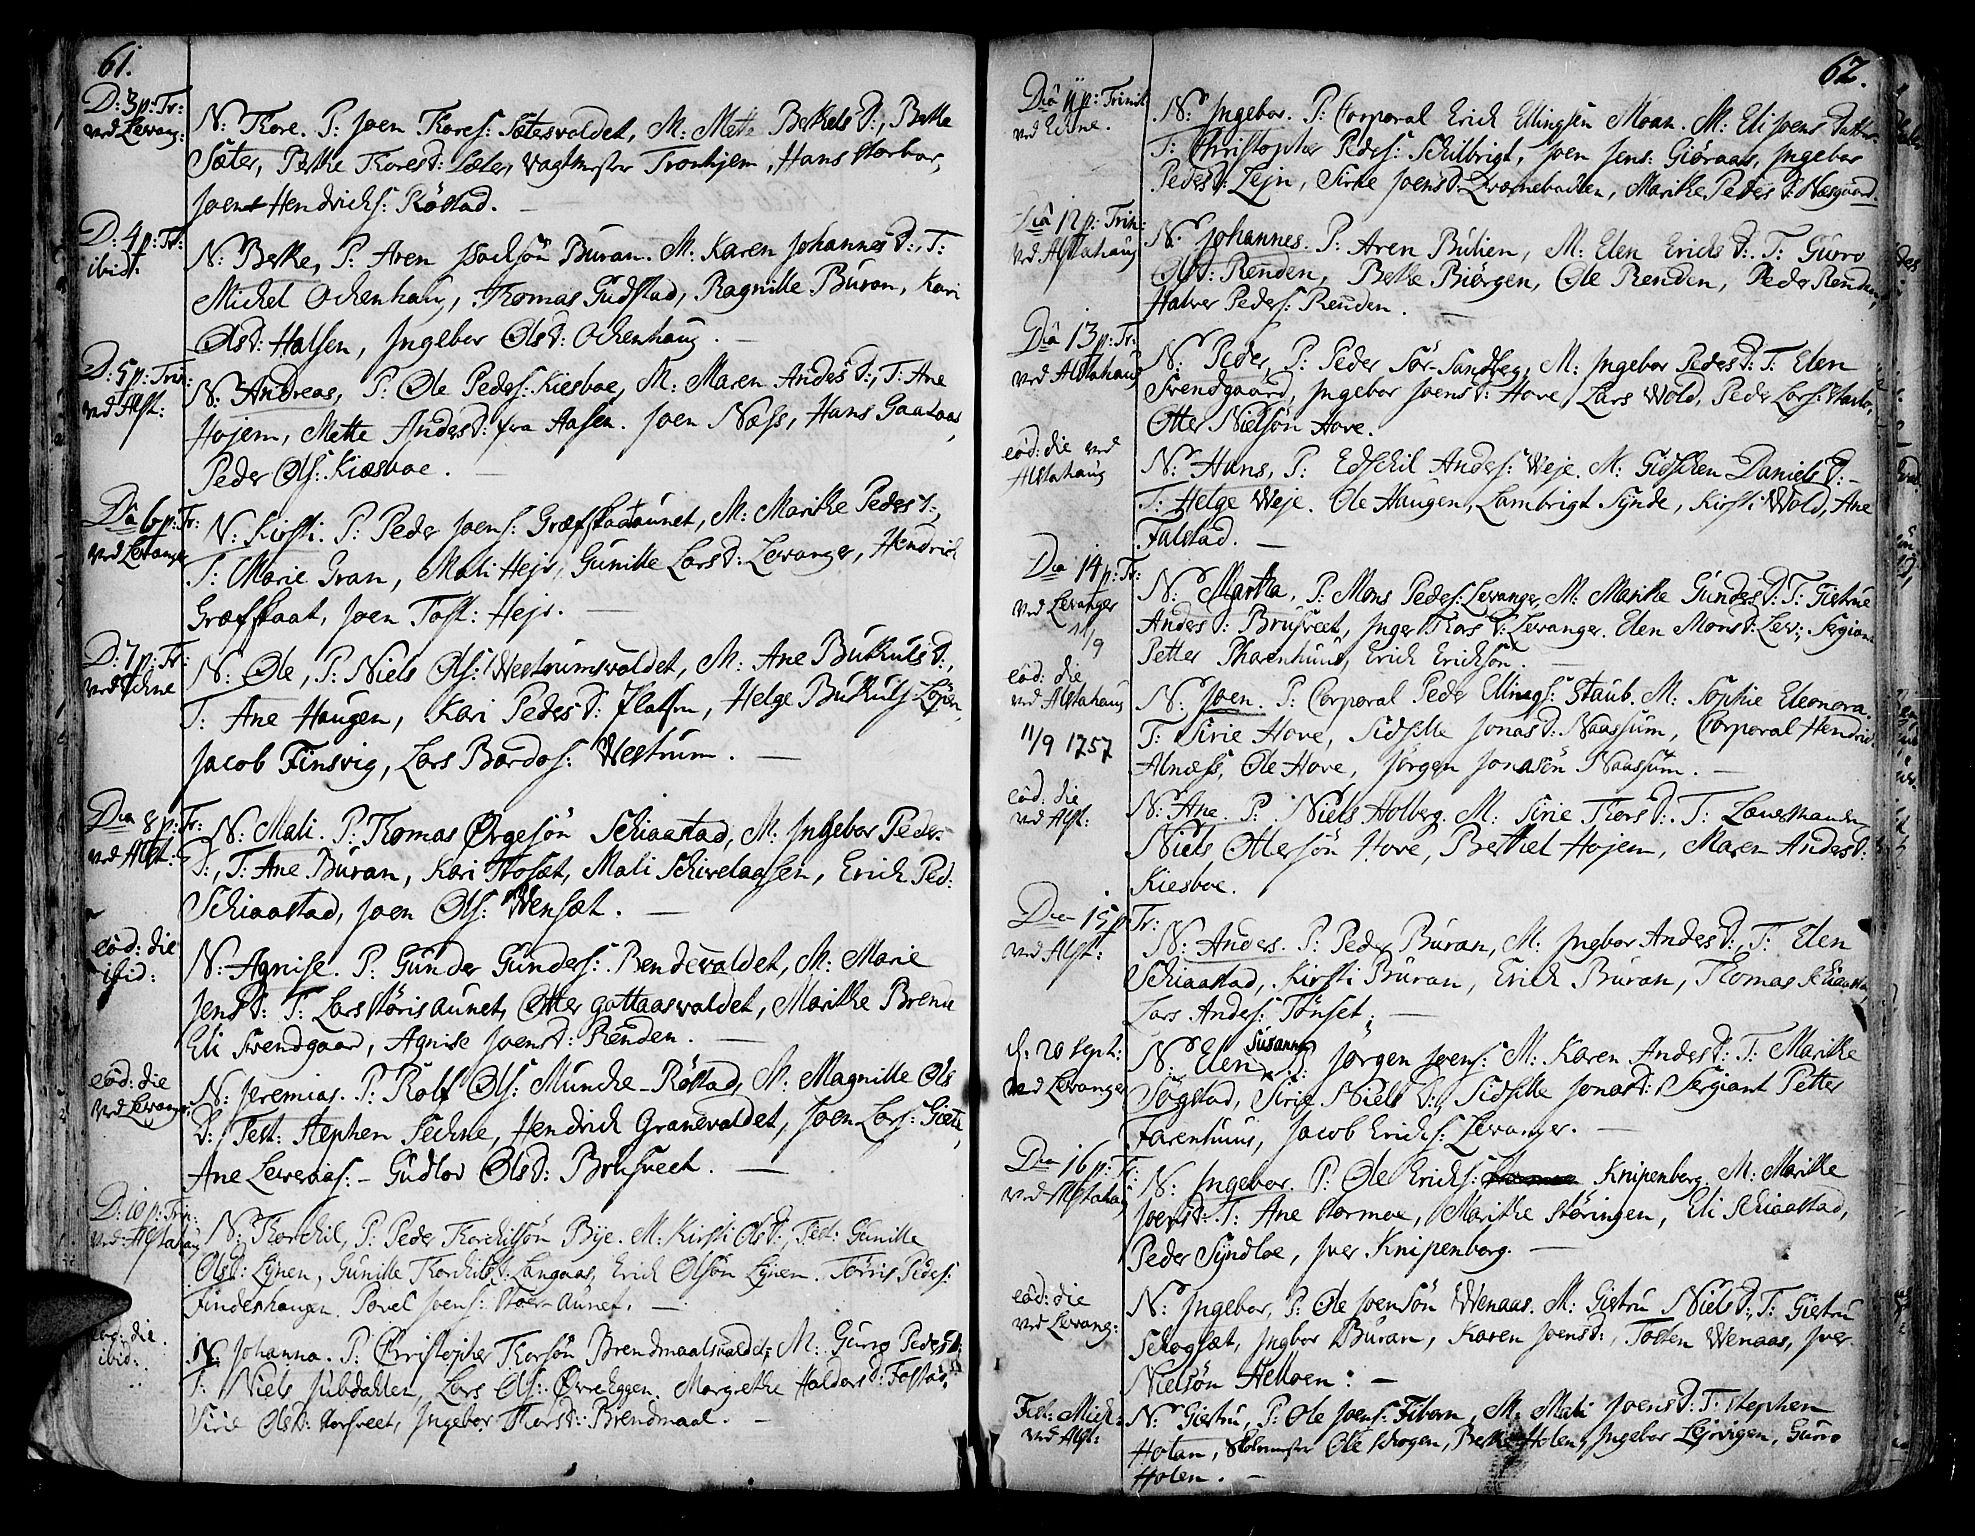 61.
D: 3 p: Tr:
ved Levang:
N: Thore. P: Joen Thores: Sætesvaldet, M: Mette Bertels D:, Berthe
Sæter, Berthe Thores D: Sæter, Vagtmester Tronhjem, Hans Norbar,
Joen Hendrichs: Röstad. —
D: 4 p: Tr:
ibid:
N: Berthe, P: Aren Isachsön Buran. M: Karen Johannes D:, T:
Michel Ochenhaug, Thomas Gudstad, Ragnille Buran, Kari
Ols D: Halsen, Ingebor Ols D: Ochenhaug. —
D: 5 p: Trin:
ved Alst:
N: Andreas, P: Ole Peders: Kiesboe, M: Maren Anders D:, T: Ane
Hojem, Mette Anders D: fra Aasen. Joen Næss, Hans Gaaraas,
Peder Ols: Kiæsboe. —
Da 6 p: Tr:
ved Levanger
N: Kirsti. P: Peder Joens: Græfskataunet, M: Marithe Peders D:,
T: Marie Gran, Mali Hejs, Gunille Lars D: Levanger, Hendrich
Græfskaat, Joen Tost: Hejs. —
D: 7 p: Tr:
ved Echne
N: Ole, P: Niels Ols: Westrumsvaldet, M: Ane Buthuls D:,
T: Ane Haugen, Kari Peders D: Flatsen, Helge Buthuls: Lojen,
Jacob Finsvig, Lars Bardos: Westrum. —
Da 8 p: Tr:
ved Alst:
N: Mali. P: Thomas Ørgesön Schiaastad, M: Ingebor Peders
D:, T: Ane Buran, Kari Mosæt, Mali Schirelaasen, Erich Ped:
Schiaastad, Joen Ols: Wensæt. —
eod: die
ibid:
N: Agnise. P: Gunder Gunders: Rendevaldet, M: Marie
Jens D: T: Lars Störisaunet, Otter Gottaasvaldet, Marithe Brenne
Eli Svendgaard, Agnise Joens D: Renden. —
eod: die
ved Levang:
N: Jeremias. P: Rolf Ols: Munche-Röstad, M: Magnille Ols
D: Test: Stephen Sechne, Hendrich Granevaldet, Joen Lars: Giæte,
Ane Leveraas: - Gudlov Ols D: Brusveet. —
D: 10 p: Trin:
ved Alstahaug
N: Thorchil, P: Peder Thorchilsön Bye. M: Kirsti Ols D:, Test: Gunille
Ols D: Lynen, Gunille Thorchils D: Langaas, Erich Olsön Lynen. Törris Peders:
Findeshaugen. Povel Joens: Stoer-Aunet. —
eod: die
ibid:
N: Johanna. P: Christopher Thorsön Brendmaalsvald: M: Gurro Peders D:
T: Niels Julsdahlen, Lars Ols: Øvre Eggen. Margrethe Haldors D: Fostad,
Sirie Ols D: Korsveet, Ingebor Thors D: Brendmaal. —
62.
Dia 11 p: Trinit:
ved Echne.
N: Ingebor. P: Corporal Erich Ellingsen Moan. M: Eli Joens Datter.
T: Christopher Peders: Schilbrigt, Joen Jens: Giöraas, Ingebor
Peders D: Lejn, Sirie Joens D: Qværnebachen, Marithe Peders D: Næsgaard.
Dia 12 p: Trin:
ved Alstahaug
N: Johannes. P: Aren Bulien, M: Elen Erichs D:. T: Gurro
Ols D: Renden, Berthe Biörgen, Ole Renden, Peder Renden,
Halver Peders: Renden. —
Dia 13 p: Tr:
ved Alstahaug
N: Peder, P: Peder Sör-Sandveg, M: Ingebor Peders D: T: Elen
Svendsgaard, Ingebor Joens D: Hove, Lars Wold, Peder Lars: Marbo,
Otter Nielsön Hove.
eod: die ved
Alstahaug
N: Hans, P: Edschil Anders: Weje. M: Gidschen Daniels D: -
T: Helge Weje. Ole Haugen, Lambrigt Synde, Kirsti Wold, Ane
Falstad. —
Dia 14 p: Tr:
ved Levanger
11/9
N: Martha, P: Mons Peders: Levanger, M: Marithe Gunders D: T: Giertrue
Anders D: Brusveet, Inger Thors D: Levanger. Elen Mons D: Lev:, Sergiant
Petter Pharenhuus, Erich Erichsön. —
eod: die
ved Alstahaug
11/9 1757
N: Joen. P: Corporal Peder Ellings: Staub. M: Sophie Eleonora.
T: Sirie Hove, Sidselle Jonas D: Naassum, Corporal Hendrich
Alnæss, Ole Hove, Jörgen Jonasön Naassum. —
eod: die
ved Alst:
N: Ane. P: Niels Holberg. M: Sirie Thors D:. T: Lænsmanden
Niels Ottersön Hove, Berthel Hojem, Maren Anders D:
Kiesboe.
Dia 15 p: Tr:
ved Alst:
N: Anders. P: Peder Buran, M: Ingebor Anders D:, T: Elen
Schiaastad, Kirsti Buran, Erich Buran, Thomas Schiaastad,
Lars Anders: Tönset. —
d: 20 Sept:
ved Levanger
N: Elen Susanna, P: Jörgen Joens: M: Karen Anders D: T: Marithe
Sögstad, Sirie Niels D:, Sidselle Jonas D: Sergiant Petter
Farenhuus, Jacob Erichs: Levanger. —
Dia 16 p: Tr:
ved Alstahaug
N: Ingebor. P: Ole Erichs: Knipenberg. M: Marithe
Joens D: T: Ane Mormoe, Marithe Störingen, Eli Schiaastad,
Peder Syndloe, Iver Knipenberg. —
eod: die
ved Levang:
N: Ingebor, P: Ole Joensön Wenaas. M: Giertru Niels D:, T: Giertru
Schogsæt, Ingebor Buran, Karen Joens D:, Tosten Wenaas, Iver
Nielsön Helloen: —
Fest: Mich:
ved Alst:
N: Giertru, P: Ole Joens: Fibern, M: Mali Joens D: T: Stephen
Hotan, Ole Schogen, Berthe Holen, Ingebor Lejrvigen, Gurro
Holen. —